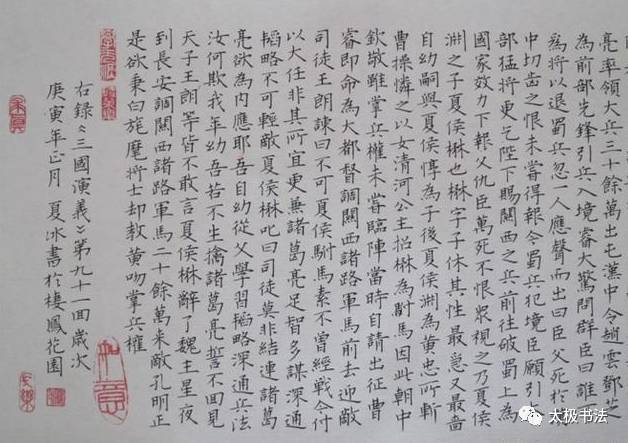 亮率領大兵三十餘萬出屯漢中令趙雲鄧芝
為前部先鋒引兵入境睿大驚問群臣曰誰
為將以退蜀兵忽一人應聲而出曰臣父死於
中切齒之恨未嘗得報今蜀兵犯境臣願引
部猛將更乞陛下賜關西之兵前往破蜀上為
國家效力下報父仇臣萬死不恨眾視之乃夏侯
淵之子夏侯楙也楙字子休其性最急又最嗇
自幼嗣與夏侯惇為子後夏侯淵為黃忠所斬
曹操憐之以女清河公主招楙為駙馬因此朝中
欽敬雖掌兵權未嘗臨陣當時自請出征曹
睿即命為大都督調關西諸路軍馬前去迎敵
司徒王朗諫曰不可夏侯駙馬素不曾經戰今付
以大任非其所宜更兼諸葛亮足智多謀深通
韜略不可輕敵夏侯楙叱曰司徒莫非結連諸葛
亮欲為內應耶吾自幼從父學習韜略深通兵法
汝何欺我年幼吾若不生擒諸葛亮誓不回見
天子王朗等皆不敢言夏侯楙辭了魏主星夜
到長安調關西諸路軍馬二十餘萬來敵孔明正
是欲秉白旄麾將士却教黃吻掌兵權
右錄《三國演義》第九十一回歲次
庚寅年正月夏冰書於棲鳳花園
如意
太极书法